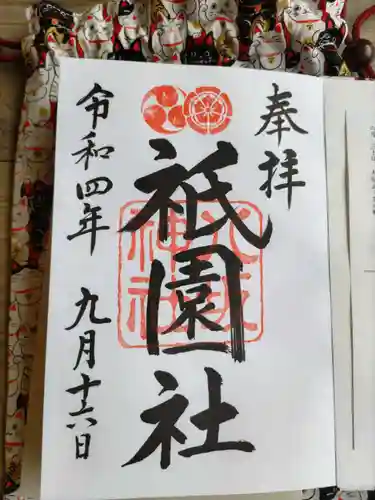 奉拝
祇園社
八坂神社
令和四年 九月十六日